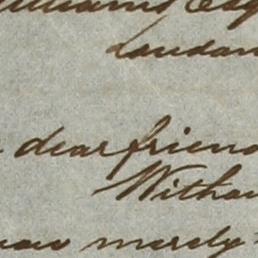 illiams Esq
Loudan
dear friend
Withou
now merely